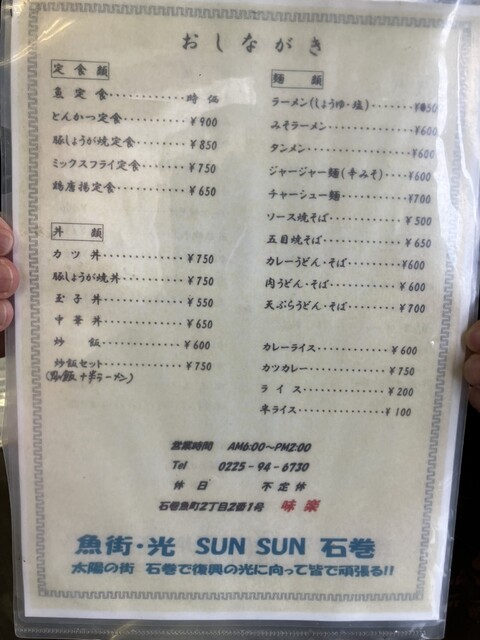 おしながき
定食類
魚定食・・・・・・・・・・時価
とんかつ定食・・・・・・・・¥900
豚しょうが焼定食・・・・・・¥850
ミックスフライ定食・・・・・¥750
鶏唐揚定食・・・・・・・・・¥650
丼類
カツ丼・・・・・・・・・・・¥750
豚しょうが焼丼・・・・・・・¥750
玉子丼・・・・・・・・・・・¥550
中華丼・・・・・・・・・・・¥650
炒飯・・・・・・・・・・・・¥600
炒飯セット・・・・・・・・・¥750
半ラーメン)
麺類
ラーメン(しょうゆ・塩)・・・・・・
みそラーメン・・・・・・・・¥600
タンメン・・・・・・・・・・¥600
ジャージャー麺(辛みそ)・・・¥600
チャーシュー麺・・・・・・・¥700
ソース焼そば・・・・・・・・¥500
五目焼そば・・・・・・・・・¥650
カレーうどん・そば・・・・・¥600
肉うどん・そば・・・・・・・¥600
天ぷらうどん・そば・・・・・¥700
カレーライス・・・・・・・・¥600
カツカレー・・・・・・・・・¥750
ライス・・・・・・・・・・・¥200
半ライス・・・・・・・・・・¥100
営業時間 AM6:00～PM2:00
Tel 0225-94-6730
休日 不定休
石巻魚町2丁目2番1号 味楽
魚街・光 SUN SUN 石巻
太陽の街 石巻で復興の光に向って皆で頑張る!!